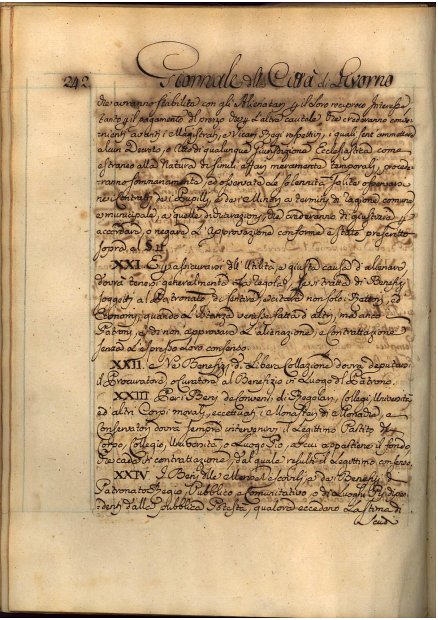 242. Giornale della Città di Livorno
che avranno stabilita con gli Alienatari p il loro reciproco Interesse
tanto p il pagamento di prezzo che p l'altre cautele che crederanno conve-
nienti avanti i Magistrati, o Vicari Regi respettivi, i quali senza ammettere
alcun Decreto, o Atto di qualunque Giurisdizione Ecclesiastica come
estraneo alla Natura di simili affari meramente temporali, procede-
ranno sommariamente, ed osservate le solennità solite osservarsi
nei Contratti dei Pupilli, e dei Minori a termini di ragione comune
e municipale, a quelle dichiarazioni, che crederanno di giustizia p
accordare, o negare l'Approvazione conforme è stato prescritto
sopra al § II
XXI E p assicurarsi dell'Utilità, e giusta causa d'alienare
dovrà tenersi generalmente la regola, che se si tratta di Benefizi
soggetti al Patronato di sentire, e citare non solo i Rettori, ed
Economi, quando l'Istanza venisse fatta d'altri, ma anco i
Patroni, e di non approvare l'alienazione, e contrattazione
senza l'espresso loro consenso.
XXII E Nei Benefizi di Libera Collazione dovrà deputarsi
il Procuratore, o Curatore al Benefizio in Luogo del Patrono.
XXIII Per i Beni dei Conventi di Regolari, Collegi, Università
ed altri Corpi morali, eccettuati i Monasteri di Monache, e
Conservatori dovrà sempre intervenirvi il Legittimo Partito del
Corpo, Collegio, Università, o Luogo Pio, a cui appartiene il fondo,
che cade in contrattazione, dal quale resulti il legittimo consenso.
XXIV I Beni delle Mense Vescovili, e dei Benefizi di
Patronato Regio, Pubblico, o Comunitativo, o di Luoghi Pii dipen-
denti dalla pubblica Potestà, qualora eccedano la stima di
scudi